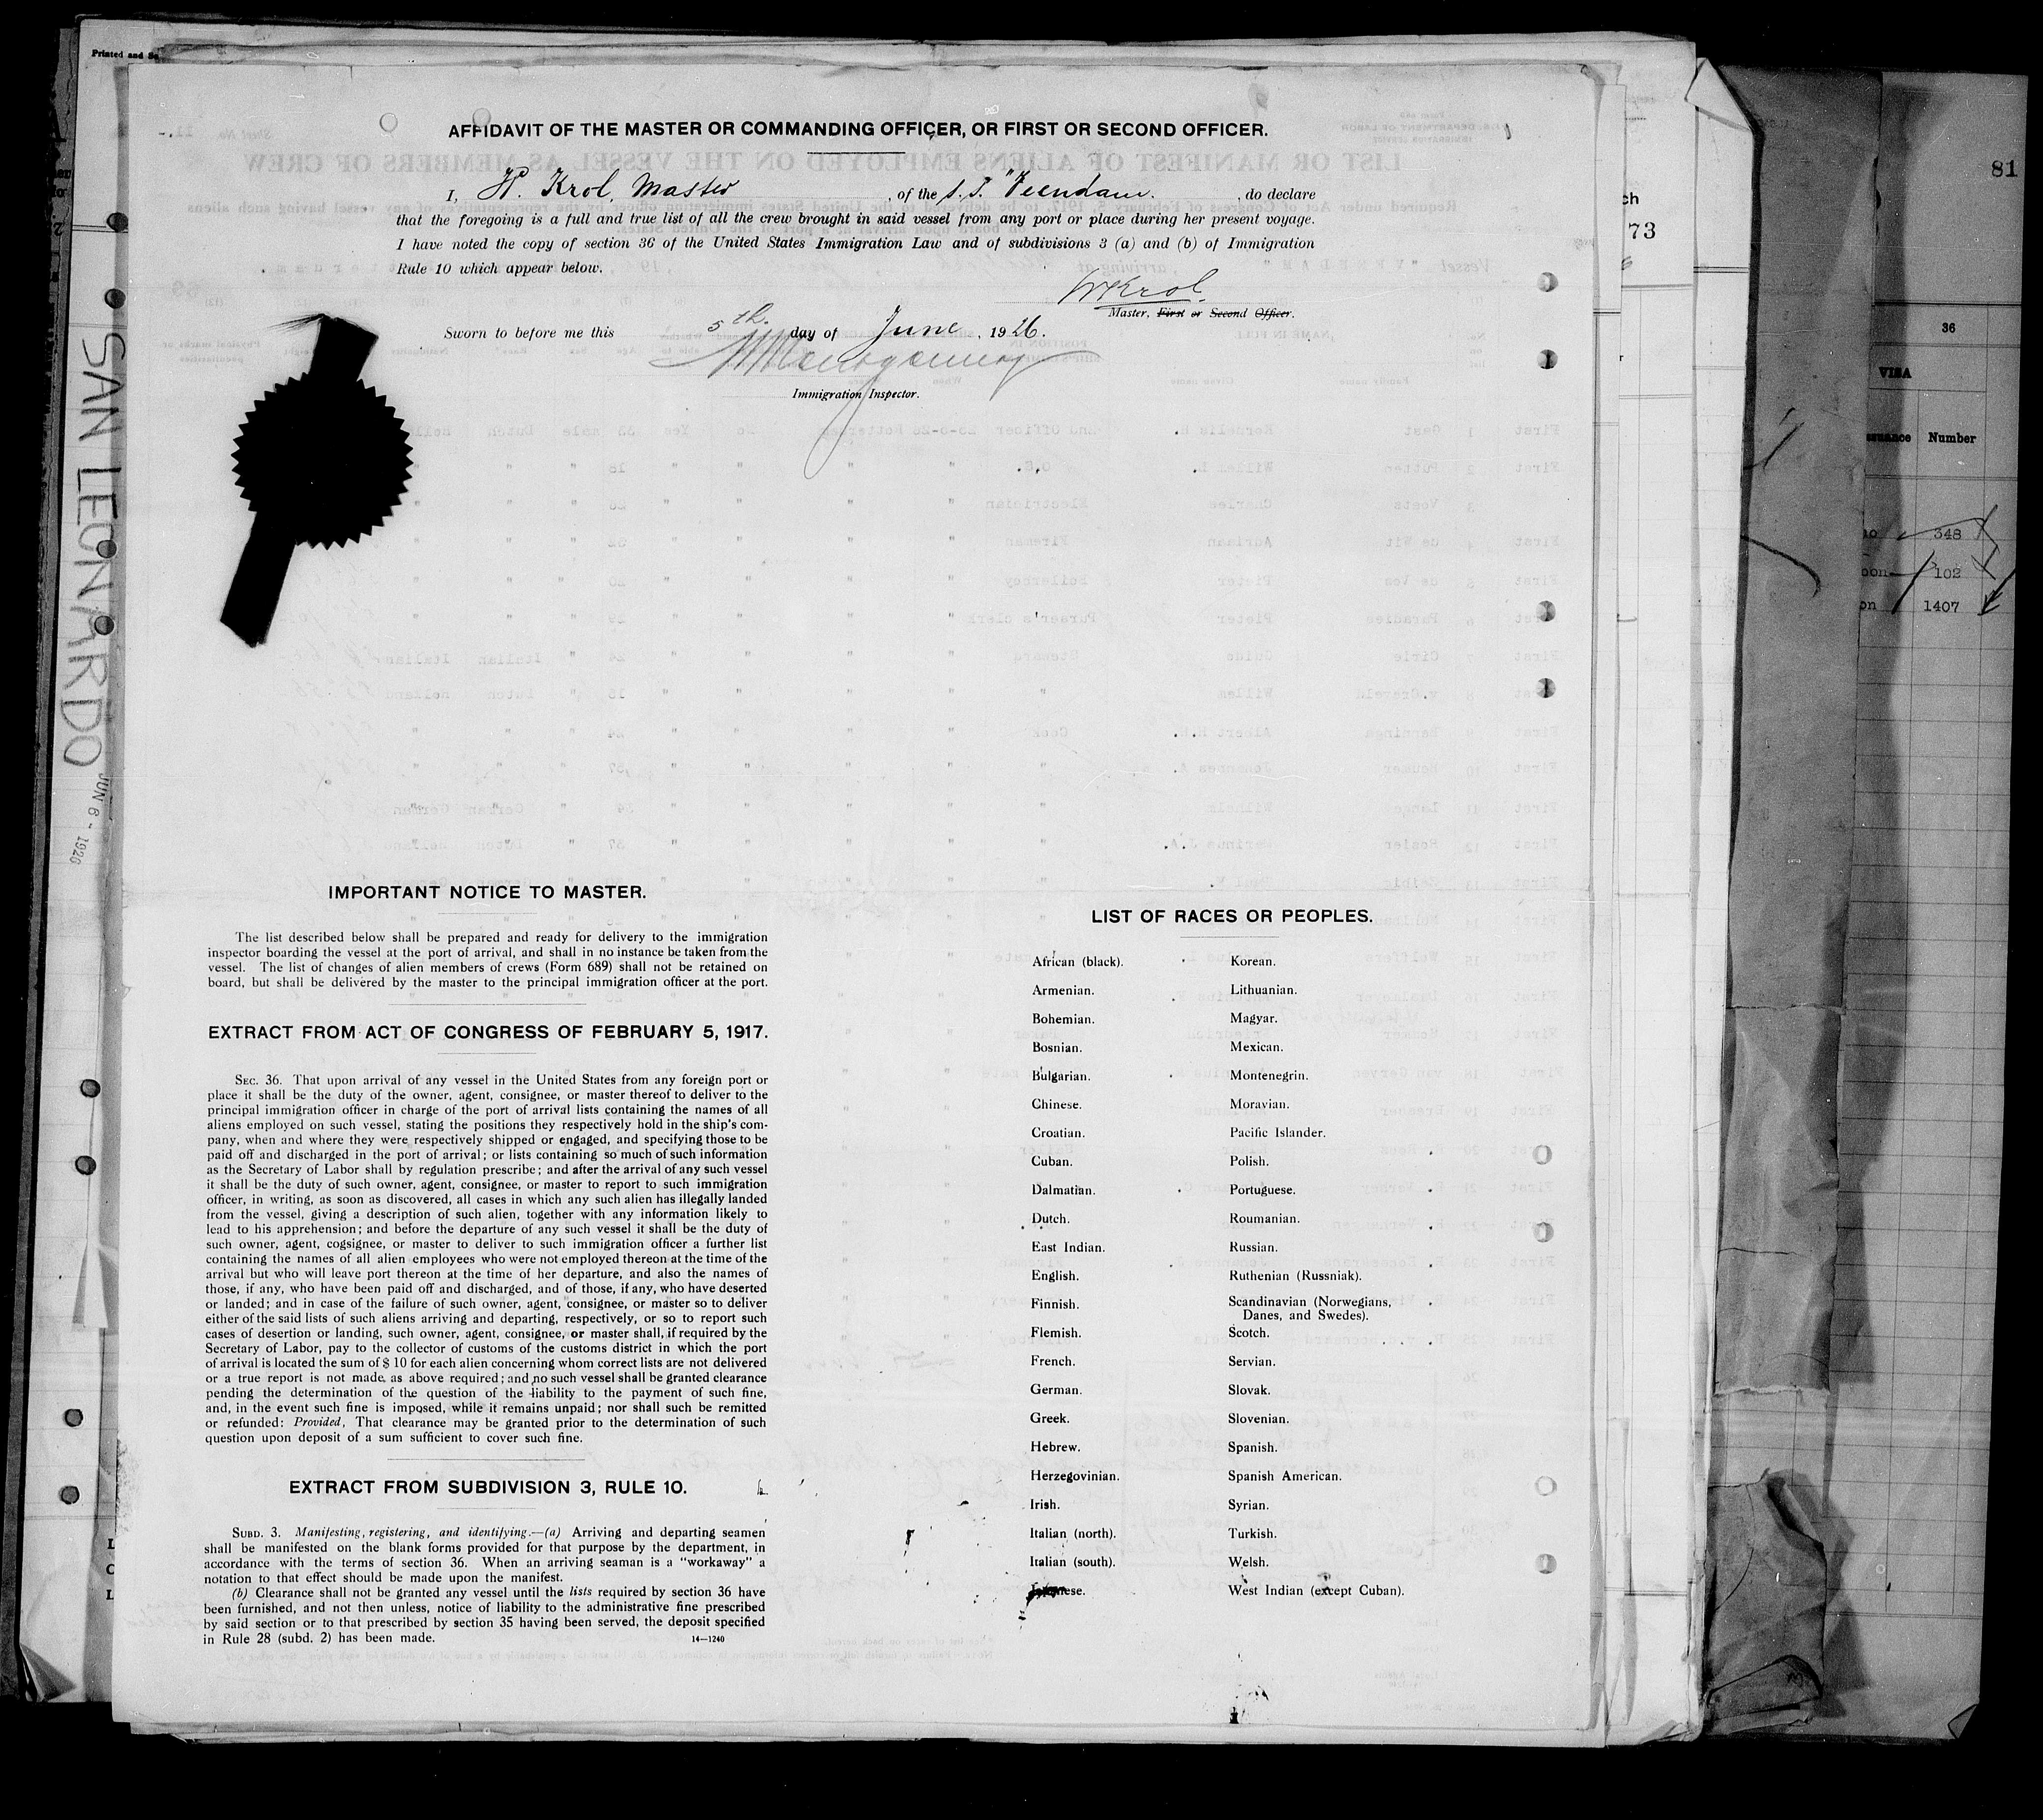 AFFIDAVIT OF THE MASTER OR COMMANDING OFFICER, OR FIRST OR SECOND OFFICER.
I, W. Krol, Master, of the s.s. "Veendam. , do declare
that the foregoing is a full and true list of all the crew brought in said vessel from any port or place during her present voyage.
I have noted the copy of section 36 of the United States Immigration Law and of subdivisions 3 (a) and (b) of Immigration
Rule 10 which appear below.
WKrol.
Master, First or Second Officer.
Sworn to before me this 5th. day of June, 1926.
Immigration Inspector.
IMPORTANT NOTICE TO MASTER.
The list described below shall be prepared and ready for delivery to the immigration
inspector boarding the vessel at the port of arrival, and shall in no instance be taken from the
vessel. The list of changes of alien members of crews (Form 689) shall not be retained on
board, but shall be delivered by the master to the principal immigration officer at the port.
EXTRACT FROM ACT OF CONGRESS OF FEBRUARY 5, 1917.
SEC. 36. That upon arrival of any vessel in the United States from any foreign port or
place it shall be the duty of the owner, agent, consignee, or master thereof to deliver to the
principal immigration officer in charge of the port of arrival lists containing the names of all
aliens employed on such vessel, stating the positions they respectively hold in the ship's com-
pany, when and where they were respectively shipped or engaged, and specifying those to be
paid off and discharged in the port of arrival; or lists containing so much of such information
as the Secretary of Labor shall by regulation prescribe; and after the arrival of any such vessel
it shall be the duty of such owner, agent, consignee, or master to report to such immigration
officer, in writing, as soon as discovered, all cases in which any such alien has illegally landed
from the vessel, giving a description of such alien, together with any information likely to
lead to his apprehension; and before the departure of any such vessel it shall be the duty of
such owner, agent, cogsignee, or master to deliver to such immigration officer a further list
containing the names of all alien employees who were not employed thereon at the time of the
arrival but who will leave port thereon at the time of her departure, and also the names of
those, if any, who have been paid off and discharged, and of those, if any, who have deserted
or landed; and in case of the failure of such owner, agent, consignee, or master so to deliver
either of the said lists of such aliens arriving and departing, respectively, or so to report such
cases of desertion or landing, such owner, agent, consignee, or master shall, if required by the
Secretary of Labor, pay to the collector of customs of the customs district in which the port
of arrival is located the sum of $ 10 for each alien concerning whom correct lists are not delivered
or a true report is not made, as above required; and no such vessel shall be granted clearance
pending the determination of the question of the liability to the payment of such fine,
and, in the event such fine is imposed, while it remains unpaid; nor shall such be remitted
or refunded: Provided, That clearance may be granted prior to the determination of such
question upon deposit of a sum sufficient to cover such fine.
EXTRACT FROM SUBDIVISION 3, RULE 10.
SUBD. 3. Manifesting, registering, and identifying.—(a) Arriving and departing seamen
shall be manifested on the blank forms provided for that purpose by the department, in
accordance with the terms of section 36. When an arriving seaman is a "workaway" a
notation to that effect should be made upon the manifest.
(b) Clearance shall not be granted any vessel until the lists required by section 36 have
been furnished, and not then unless, notice of liability to the administrative fine prescribed
by said section or to that prescribed by section 35 having been served, the deposit specified
in Rule 28 (subd. 2) has been made.
14—1240
LIST OF RACES OR PEOPLES.
African (black).
Armenian.
Bohemian.
Bosnian.
Bulgarian.
Chinese.
Croatian.
Cuban.
Dalmatian.
Dutch.
East Indian.
English.
Finnish.
Flemish.
French.
German.
Greek.
Hebrew.
Herzegovinian.
Irish.
Italian (north).
Italian (south).
Korean.
Lithuanian.
Magyar.
Mexican.
Montenegrin.
Moravian.
Pacific Islander.
Polish.
Portuguese.
Roumanian.
Russian.
Ruthenian (Russniak).
Scandinavian (Norwegians,
Danes, and Swedes).
Scotch.
Servian.
Slovak.
Slovenian.
Spanish.
Spanish American.
Syrian.
Turkish.
Welsh.
West Indian (except Cuban).
Printed and
SAN LEONARDO
JUN 6 - 1926
73
81
36
VISA
Number
348
102
1407